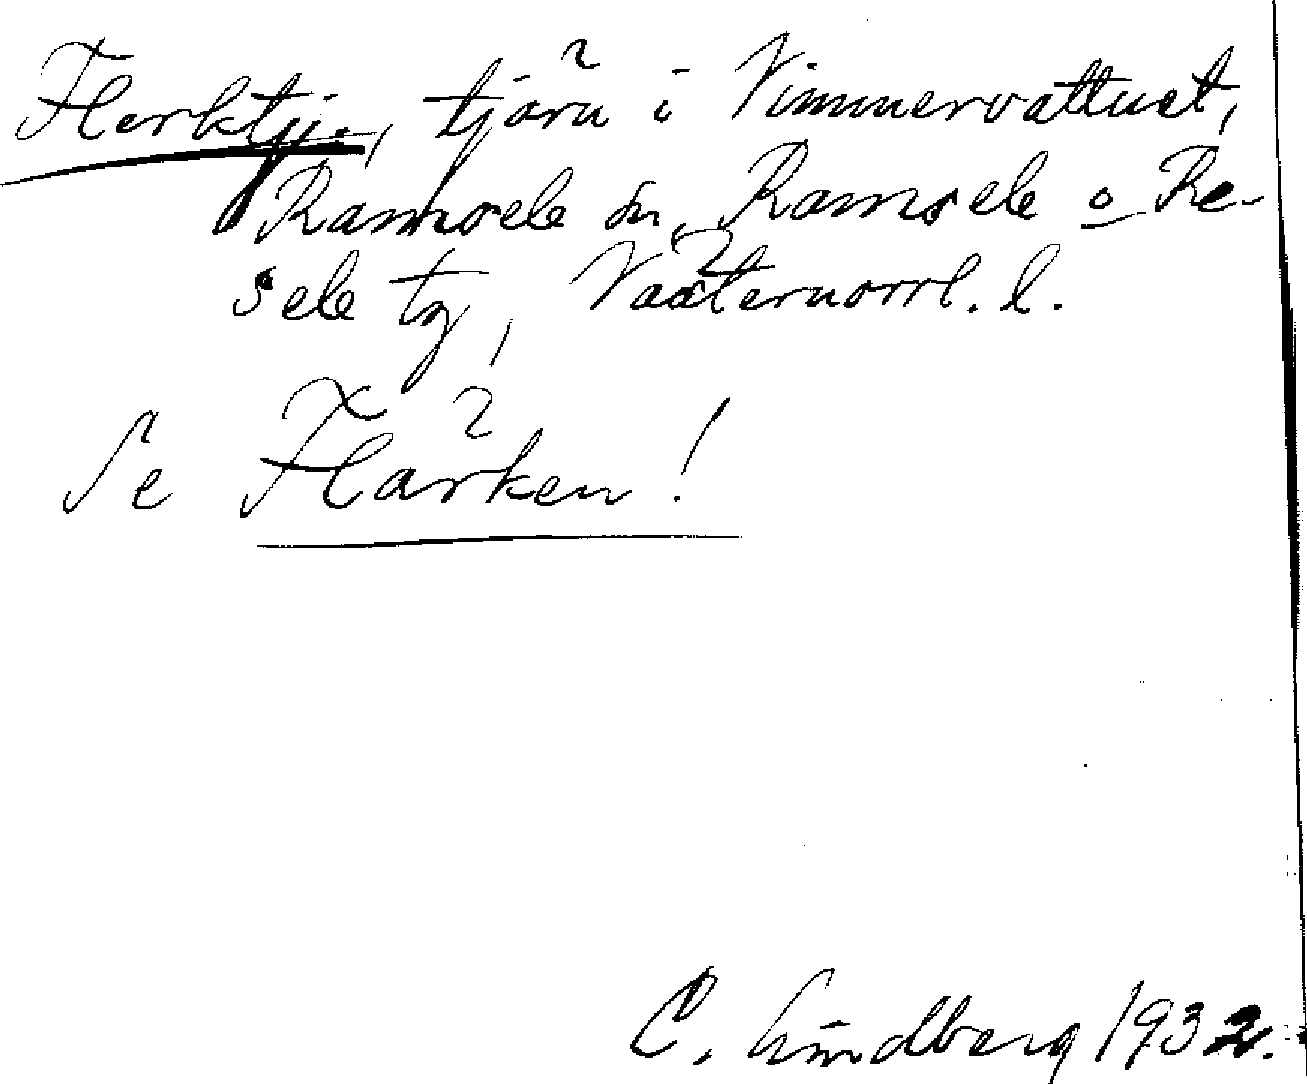 Flerktj., tjärn i Vimmervattnet,
Ramsele sn, Ramsele o Re-
sele tg, Västernorrl. l.
Se Flärken!
C. Lindberg 1932.